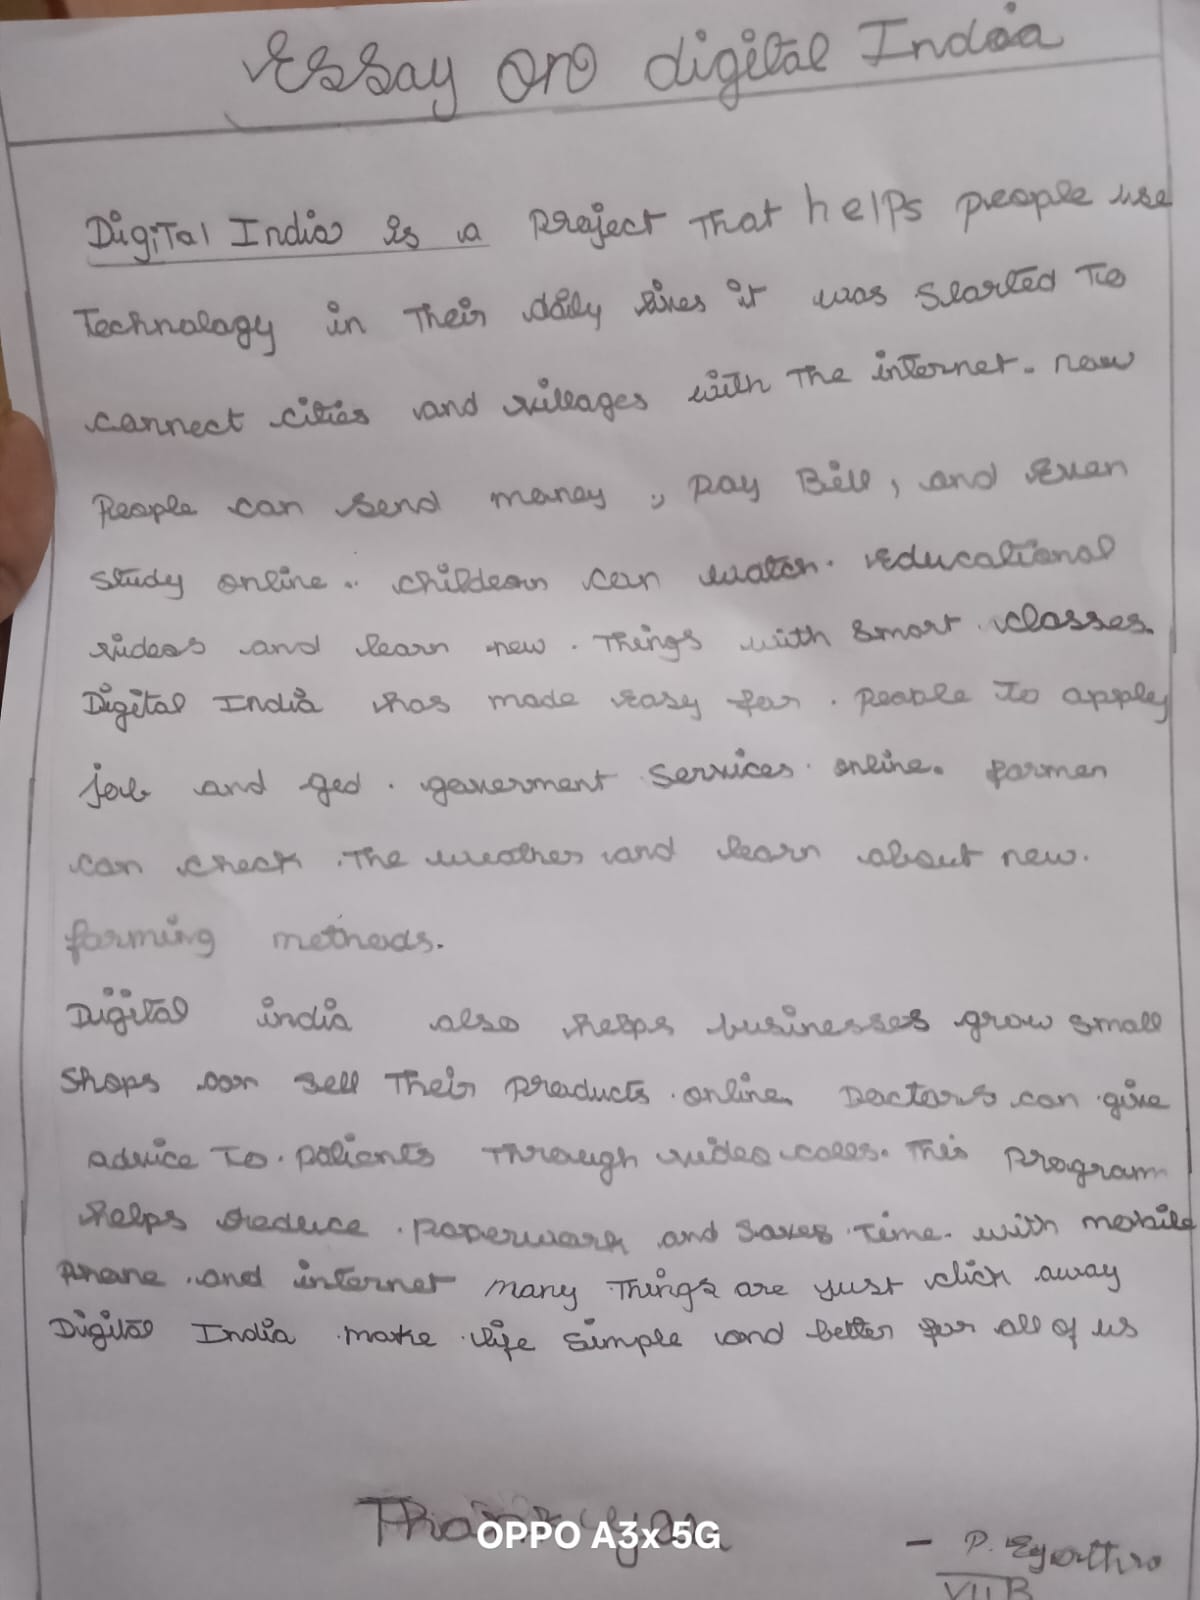 Essay on digital India
Digital India is a project that helps people use
Technology in their daily lives it was started to
connect cities and villages with the internet. now
People can send money, pay Bill, and even
study online. children can watch educational
videos and learn new things with smart classes.
Digital India has made easy for people to apply
job and ged goverment services online. farmer
can check the weather and learn about new
farming methods.
Digital india also helps businesses grow small
shops can sell their products online. Doctors can give
advice to patients through video calls. This program
helps reduce paperwork and saves time. with mobile
phone and internet many things are just click away
Digital India make life simple and better for all of us
Thank you
OPPO A3x 5G
- P.
VII B